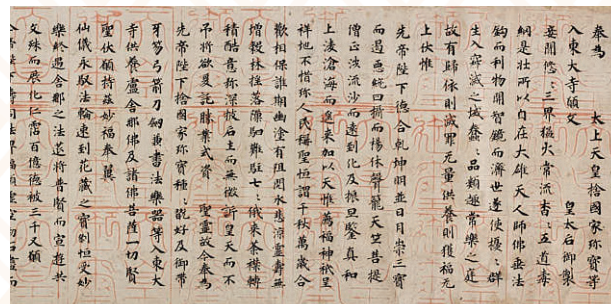 奉為　太上天皇捨國家珍寶等
入東大寺願文　皇太后御製
妾聞悠々三界猛火常流杳々五道毒
網是壯所以自在大雄天人師佛垂法
鉤而利物開智鏡而濟世遂使擾々群
生入寂滅之域蠢々品類趣常樂之庭
故有歸依則滅罪无量供養則獲福无
上伏惟
先帝陛下德合乾坤明並日月崇三寶
而遏惡統四攝而揚休聲籠天竺菩提
僧正涉流沙而遠到化及振旦鑒真和
上凌滄海而遙來加以天惟薦福神祇呈
祥地不惜珍人民稱聖恒謂千秋萬歲合
歡相保誰期幽塗有阻閱水悲涼靈壽無
增穀林搖落隟駟難駐七々俄來荼襟轉
積酷意弥深披后土而無徵訴皇天而不
弔將欲爰託勝業式資　聖靈故今奉為
先帝陛下捨國家珍寶種々翫好及御帶
牙笏弓箭刀劔兼書法樂器等入東大
寺供養盧舍那佛及諸佛菩薩一切賢
聖伏願持茲妙福奉翼
仙儀永馭法輪速到花藏之寶刹恒受妙
樂終遇舍那之法筵將普賢而宣遊共
文殊而展化仁霑百億德被三千又願